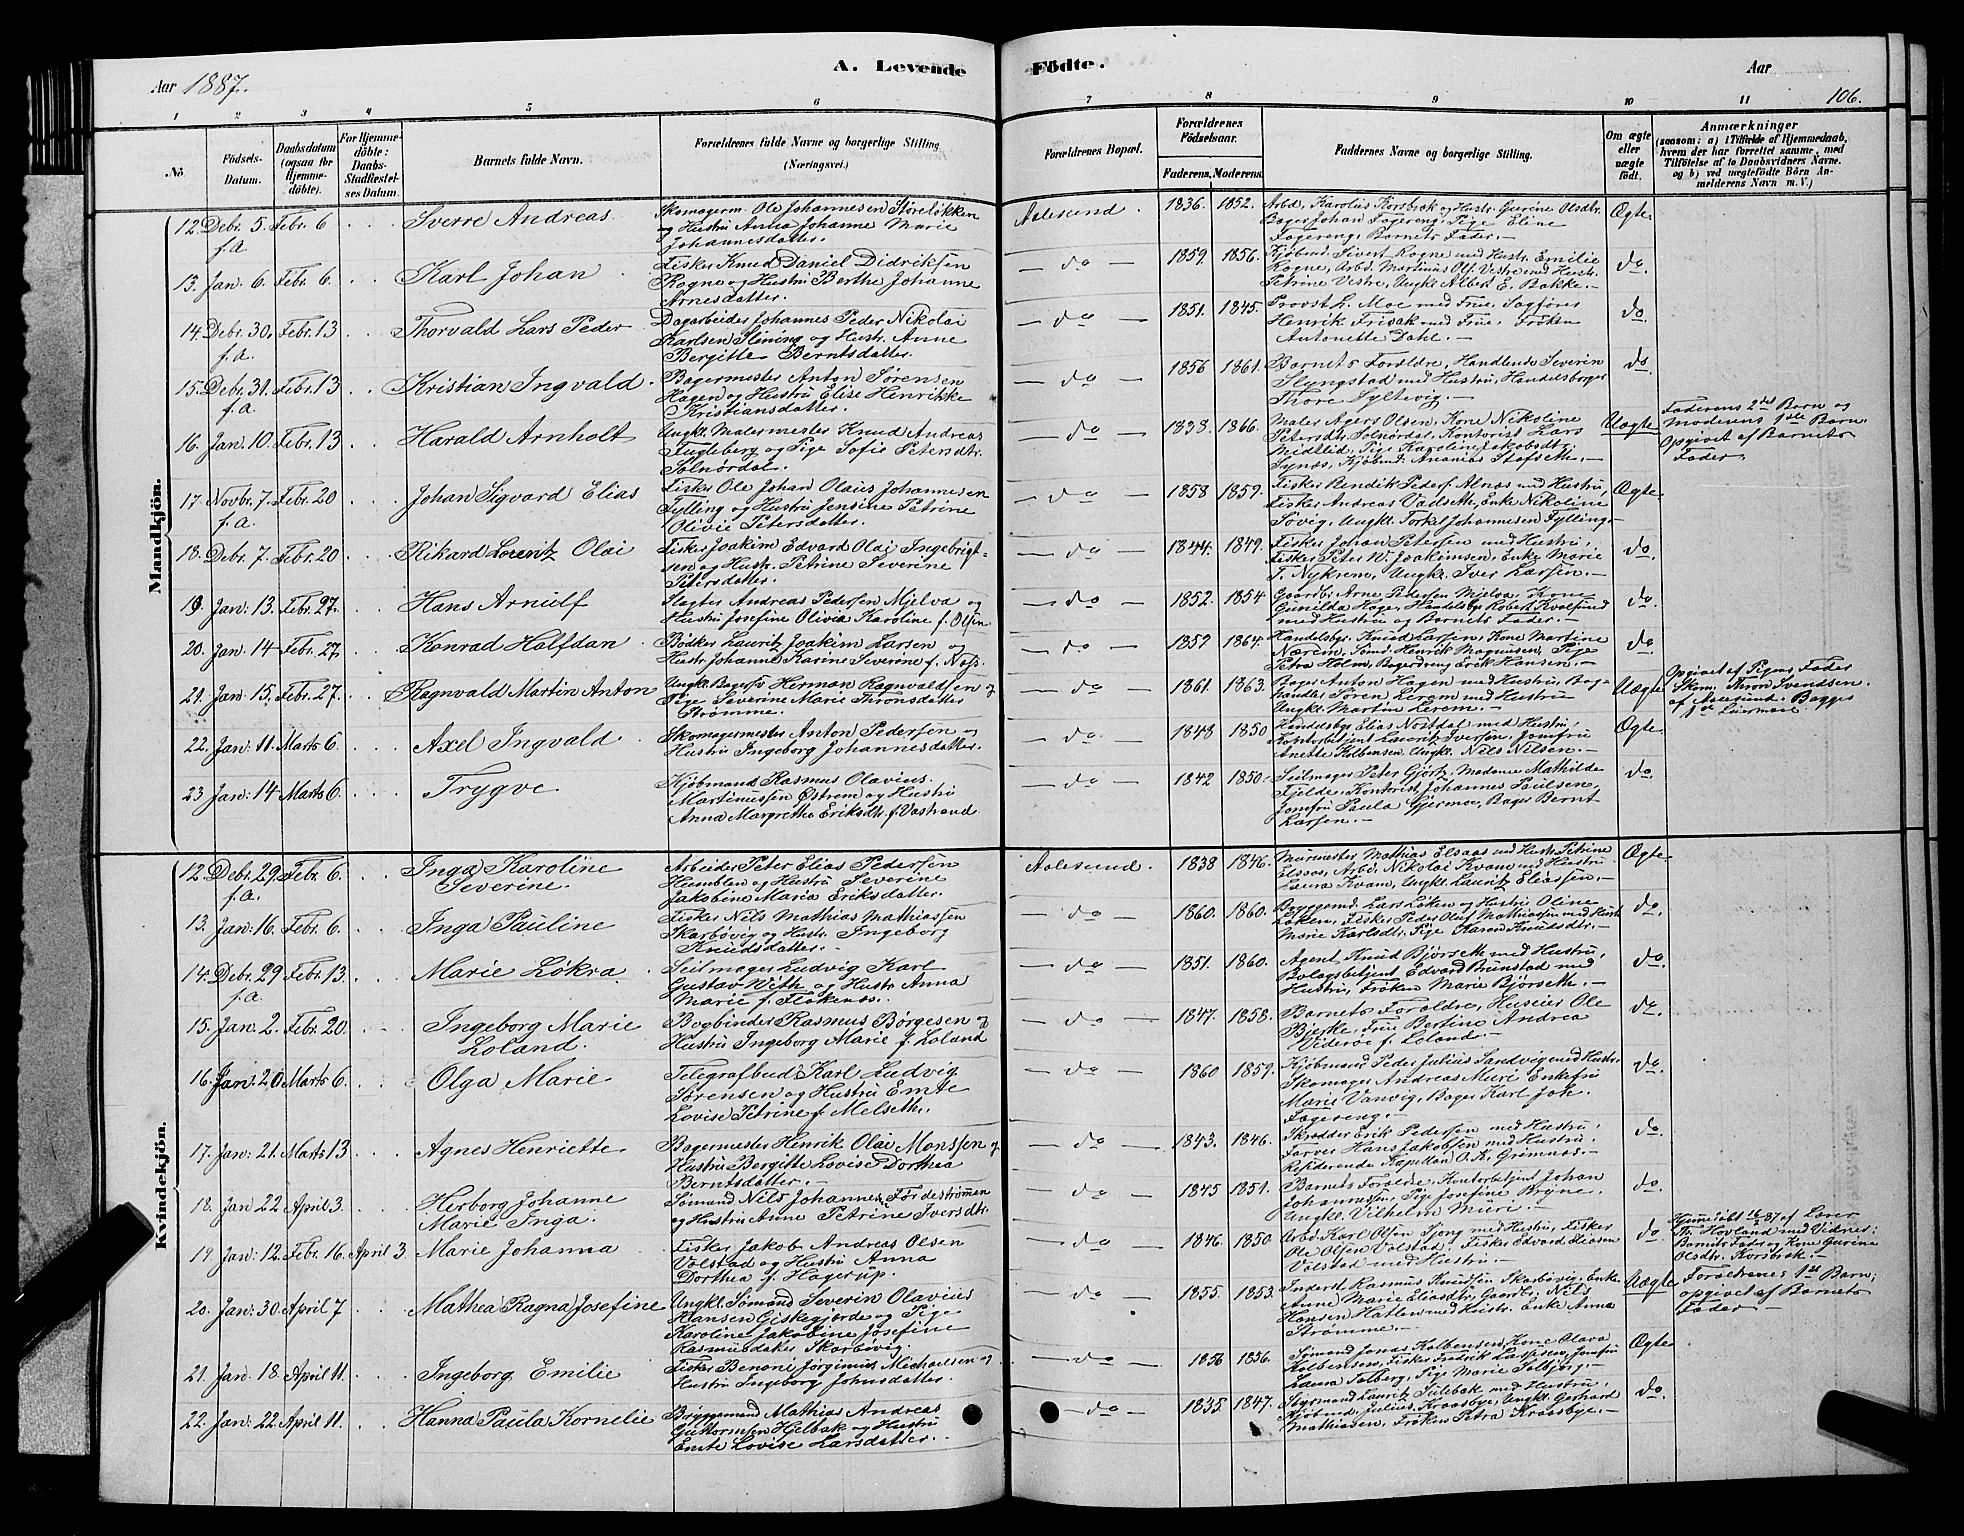 Aar 1887.
A. Levende Födte.
Aar
106.
1 2 3 4 5 6 7 8 9 10 11
No
Födsels-Datum.
Daabsdatum (ogsaa for Hjemmedöbte).
For Hjemmedöbte: Daabs-Stadfæstelses Datum.
Barnets fulde Navn.
Forældrenes fulde Navne og borgerlige Stilling (Næringsvei.)
Forældrenes Bopæl.
Forældrenes Födselsaar.
Faderens. Moderens.
Faddernes Navne og borgerlige Stilling.
Om ægte eller uægte födt.
Anmærkninger
(saasom: a) i Tilfælde af Hjemmedaab, hvem der har forrettet samme, med Tilföielse af to Daabsvidners Navne. og b) ved uægtefödte Börn Anmelderens Navn m. V.)
Mandkjön.
12. Debr. 5. f.a. Febr. 6 Sverre Andreas. Skomagerm. Ole Johannesen Støreløkken og Hustru Anna Johanne Marie Johannesdatter. Aalesund. 1836. 1852. Arbd. Karolus Korsbrek og Hustr. Gurine Olsdtr. Bager Johan Fagereng, Pige Eline Fagereng, Barnets Fader. Ægte
13. Jan. 6. Febr. 6 Karl Johan Fisker Knud Daniel Didriksen Rogne og Hustru Berthe Johanne Arnesdatter. do 1859. 1856. Kjøbmd. Sivert Rogne med Hustr. Emilie Rogne, Arbd. Martinus Ols. Vestre med Hustr. Petrine Vestre, Ungkl. Albert E. Bakke. do.
14. Debr. 30, f.a. Febr. 13 Thorvald Lars Peder Dagarbeider Johannes Peder Nikolai Karlsen Slining og Hustr. Anne Bergitte Berntsdatter. do 1851. 1845. Provst L. Moe med Frue, Sagfører Henrik Frisak med Frue, Frøken Antonette Dahl. do
15. Debr. 31. f.a. Febr. 13 Kristian Ingvald. Bagermester Anton Sørensen Hagen og Hustru Elise Henrikke Kristiansdatter. do 1856 1861. Barnets Forældre, Handlende Severin Slyngstad med Hustru, Handelsborger Thore Syltevig. do
16. Jan. 10. Febr. 13 Harald Arnholt Ungkl. Malermester Knud Andreas Fugleberg og Pige Sofie Petersdtr. Solnørdal. do 1838. 1866. Maler Agers Olsen, Kone Nikoline Petersdtr. Solnørdal, Kontorist Lars Midtlid, Pige Karoline Jakobsdtr. Synes, Kjøbmd. Ananias Stafseth. Uægte Faderens 2det Barn og Moderens 1ste Barn. Opgivet af Barnets Fader.
17. Novbr. 7. f.a. Febr. 20 Johan Sigvard Elias Fisker Ole Johan Olaus Johannesen Fylling og Hustru Jensine Petrine Olivie Petersdatter. do 1858 1859. Fisker Bendik Peders. Alnes med Hustru, Fisker Andreas Vadseth, Enke Nikoline Søvig, Ungkl. Torkel Johannesen Fylling. Ægte
18. Debr. 7. Febr. 20 Rikard Lorentz Olai Fisker Joakim Edvard Olai Ingebrigtsen og Hustr. Petrine Severine Petersdatter. do 1844. 1849. Fisker Johan Petersen med Hustru, Fisker Peter W. Joakimsen, Enke Marie T. Nykrem, Ungkl. Iver Larsen. do.
19. Jan. 13. Febr. 27. Hans Arnulf Slagter Andreas Pedersen Mjelva og Hustru Josefine Olivia Karoline f. Olsen do 1852. 1854 Gaardbr. Arne Pedersen Mjelva, Kone Gunilda Hage, Handelsbgr. Robert Kvalsund med Hustru og Barnets Fader. do.
20. Jan. 14 Febr. 27 Konrad Halfdan Bødker Lauritz Joakim Larsen og Hustr. Johanne Karine Severine f. Næs. do 1859 1864. Handelsbgr. Knud Larsen, Kone Martine Nærem, Sømd. Henrik Magnussen, Pige Petra Holm, Bagerdreng Erik Hansen. do.
21. Jan. 15. Febr. 27. Ragnvald Martin Anton Ungkl. Bagersv. Herman Ragnvaldsen og Pige Severine Marie Thronsdatter Strømme. do 1861. 1863. Bager Anton Hagen med Hustru, Boghandler Søren Lerem med Hustru Ungkl. Martin Lerem. Uægte Opgivet af Pigens Fader Skom. Thron Svendsen af Aalesund. Begges 1ste Leiermaal
22. Jan. 11 Marts 6. Axel Ingvald Skomagermester Anton Pedersen og Hustru Ingeborg Johannesdatter. do 1848 1850 Handelsbgr. Elias Nostdal med Hustru, Kontorbetjent Lauritz Iversen, Jomfru Anette Kolbensen, Ungkl. Nils Nilsen. Ægte
23 Jan. 14 Marts 6. Trygve Kjøbmand Rasmus Olavius Martinussen Østrem og Hustru Anna Margrethe Eriksdtr. f. Vastrand do 1842 1850. Seilmager Peter Gjørtz, Madame Mathilde Fjelde, Kontorist Johannes Paulsen, Jomfru Paula Gjermoe, Bager Bernt Larsen. do.
Kvindekjön.
12. Debr. 29. f.a. Febr. 6. Inga Karoline Severine. Arbeider Peter Elias Pedersen Humblen og Hustru Severine Jakobine Maria Eriksdatter. Aalesund. 1838 1846. Murmester Mathias Elsaas med Hustr. Petrine Elsaas, Arbd. Nikolai Kvam med Hustru Laura Kvam, Ungkl. Lauritz Eliassen. Ægte
13. Jan. 16. Febr. 6. Inga Pauline Fisker Nils Mathias Mathiassen Skarbøvig og Hustr. Ingeborg Knudsdatter. do 1860. 1860. Bryggemd. Lars Løken og Hustru Oline Løken, Fisker Peder Oluf Mathiassen med Hustr. Marie Karlsdtr. Pige Maren Knudsdtr. do.
14. Debr. 29 f.a. Febr. 13 Marie Løkra Seilmager Ludvig Karl Gustav With og Hustr. Anna Marie f. Flokenes. do 1851. 1860. Agent Knud Bjørseth med Hustru, Bolagsbetjent Edvard Brunstad med Hustru, Frøken Marie Bjørseth. do.
15. Jan. 2. Febr. 20. Ingeborg Marie Loland. Bogbinder Rasmus Børgesen og Hustru Ingeborg Marie f. Loland do 1847. 1858. Barnets Forældre, Huseier Ole Bjerke, Frue Bertine Andrea Viderøe f. Loland. do
16. Jan. 20 Marts 6. Olga Marie Telegrafbud Karl Ludvig Sørensen og Hustru Emte Lovise Petrine f. Melseth. do 1860 1859. Kjøbmand Peder Julius Sandvig med Hustr. Skomager Andreas Muri Enkefru Marie Vanvig, Bager Karl Joh. Fagereng. do.
17. Jan. 21. Marts 13 Agnes Henriette Bagermester Henrik Olai Monssen og Hustru Bergitte Lovise Dorthea Berntsdatter. do 1843. 1846. Skrædder Erik Pedersen med Hustru, Farver Hans Jakobsen med Hustru, Residerende Kapellan O. K. Grimnes. do.
18. Jan 22 April 3. Herborg Johanne Marie Inga. Sømand Nils Johannes Fordestrømen og Hustru Anne Petrine Iversdtr. do 1845 1851. Barnets Forældre, Kontorbetjent Johan Johannessen, Pige Josefine Bryne, Ungkl. Vilhelm Muri. do.
19. Jan: 12. Febr. 16. April 3 Marie Johanna Fisker Jakob Andreas Olsen Volstad og Hustru Anna Dorthea f. Hagerup. do 1846. 1850 Arbd. Karl Olsen Sjong med Hustru, Fisker Ole Olsen Volstad. Fisker Edvard Eliasen Volstad med Hustru. do. Hjemmedøbt 16/2 87 af Lærer Th. Hovland med Vidner: Barnets Fader og Kone Gurine Olsdtr. Korsbrek.
20. Jan: 30. April 7 Mathea Ragna Josefine Ungkl. Sømand Severin Olavius Hansen Giskegjerde og Pige Karoline Jakobine Josefine Rasmusdatter Skarbøvig. do 1855. 1853. Inderst Rasmus Knudsen Skarbøvig, Enke Anne Marie Eliasdtr. Gaardbr. Nils Hansen Hatlen med Hustr. Enke Anna Strømme. Uægte Forældrenes 1ste Barn, opgivet af Barnets Fader
21. Jan. 18. April 11. Ingeborg Emilie Fisker Benone Jørginus Michaelsen og Hustru Ingeborg Johnsdatter. do 1856 1856. Sømand Jonas Kolbensen, Kone Olava Kolbensen, Fisker Fredrik Larssen, Jomfru Laura Solberg, Pige Marie Solbjørg. Ægte
22. Jan: 22 April 11. Hanna Paula Kornelie Bryggemand Mathias Andreas Guttormsen Hjelbak og Hustru Emte Lovise Larsdatter. do 1835. 1847. Styrmand Lauritz Tulebak med Hustru, Kjøbmd. Julius Kraasbye, Ungkl. Gerhard Mathiasen, Frøken Petra Kraasbye. do.